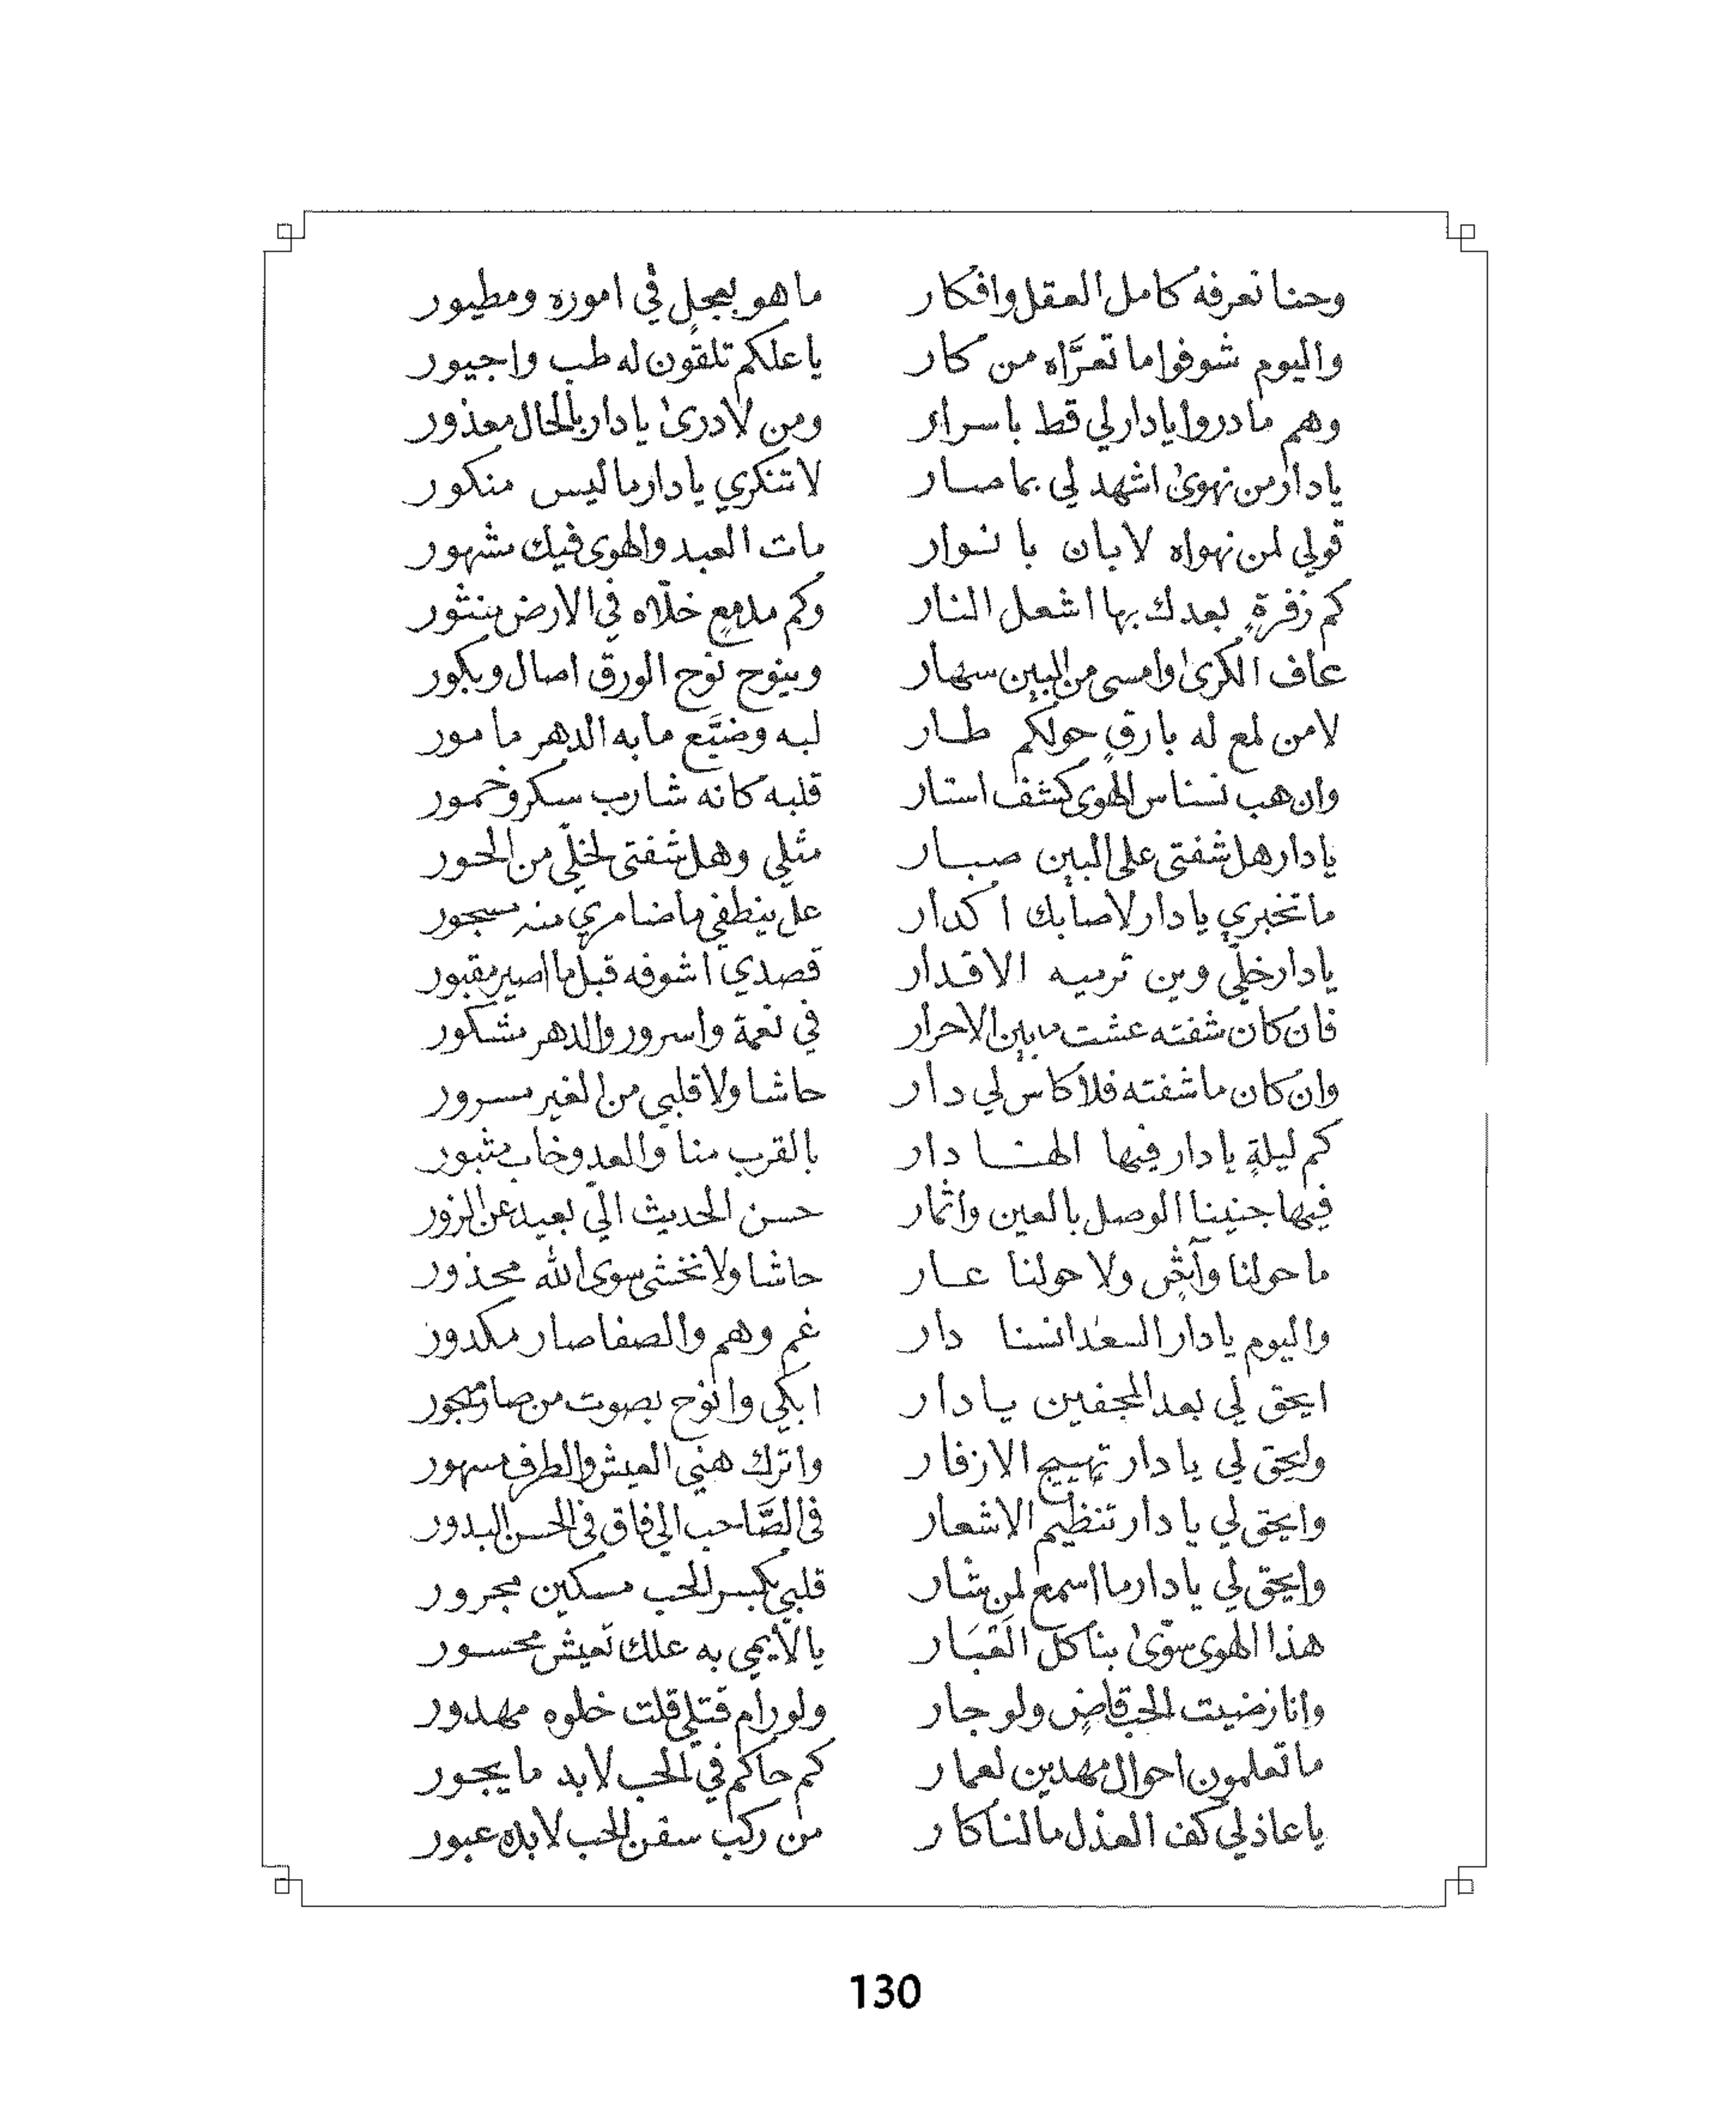 وحنا نعرفه كامل العقل وافكار ما هو بعجلٍ في اموره ومطيور
واليوم شوفوا ما تعرَّاه من كار يا علكم تلقون له طب واجيور
وهم ما دروا يا دار لي قط باسرار ومن لا درىٰ يا دار بالحال معذور
يا دار من نهوىٰ اشهد لي بما صار لا تنكري يا دار ما ليس منكور
قولي لمن نهواه لا بان با نوار مات العبد والهوى فيك مشهور
كم زفرةٍ بعدك بها اشعل النار وكم مدمعٍ خلّاه في الارض منثور
عاف الكرىٰ وامسى من البين سهار وينوح نوح الورق اصال وبكور
لا من لمع له بارقٍ حولكم طار لبه وضيَّع ما به الدهر مامور
وان هب نسناس الهوى كشف استار قلبه كانه شارب سكر وخمور
يا دار هل شفتي على البين صبار مثلي وهل شفتي لخلّي من الحور
ما تخبري يا دار لا صابك اكدار عل ينطفي ما ضامري منه مسجور
يا دار خلّي وين ترميه الاقدار قصدي اشوفه قبل ما اصير مقبور
فان كان شفته عشت ما بين الاحرار في نعمة واسرور والدهر مشكور
وان كان ما شفته فلا كاس لي دار حاشا ولا قلبي من الغير مسرور
كم ليلةٍ يا دار فيها الهنا دار بالقرب منا والعدو خاب مثبور
فيها جنينا الوصل بالعين واثمار حسن الحديث الّي بعيد عن الزور
ما حولنا وآشٍ ولا حولنا عار حاشا ولا نخشى سوى الله محذور
واليوم يا دار السعد انسنا دار غم وهم والصفا صار مكدور
ايحق لي بعد المجفين يا دار ابكي وانوح بصوت من صار مهجور
وايحق لي يا دار تهييج الازفار واترك هني العيش والطرف مسهور
وايحق لي يا دار تنظيم الاشعار في الصَّاحب الي فاق في الحسن البدور
وايحق لي يا دار ما اسمع لمن شار قلبي بكسر الحب مسكين مجرور
هذا الهوى سوّىٰ بنا كل القبَار يا لايمي به علك تعيش محسور
وانا رضيت الحب قاضٍ ولو جار ولو رام قتلي قلت خلوه مهدور
ما تعلمون احوال مهدين لعمار كم حاكم في الحب لا بد ما يجور
يا عاذلي كف العذل ما لنا كار من ركب سفن الحب لا بده عبور
130